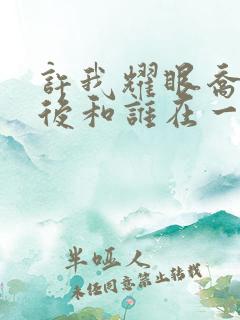 許我耀眼喬
後和誰在一
半啞人
未经同意禁止转载